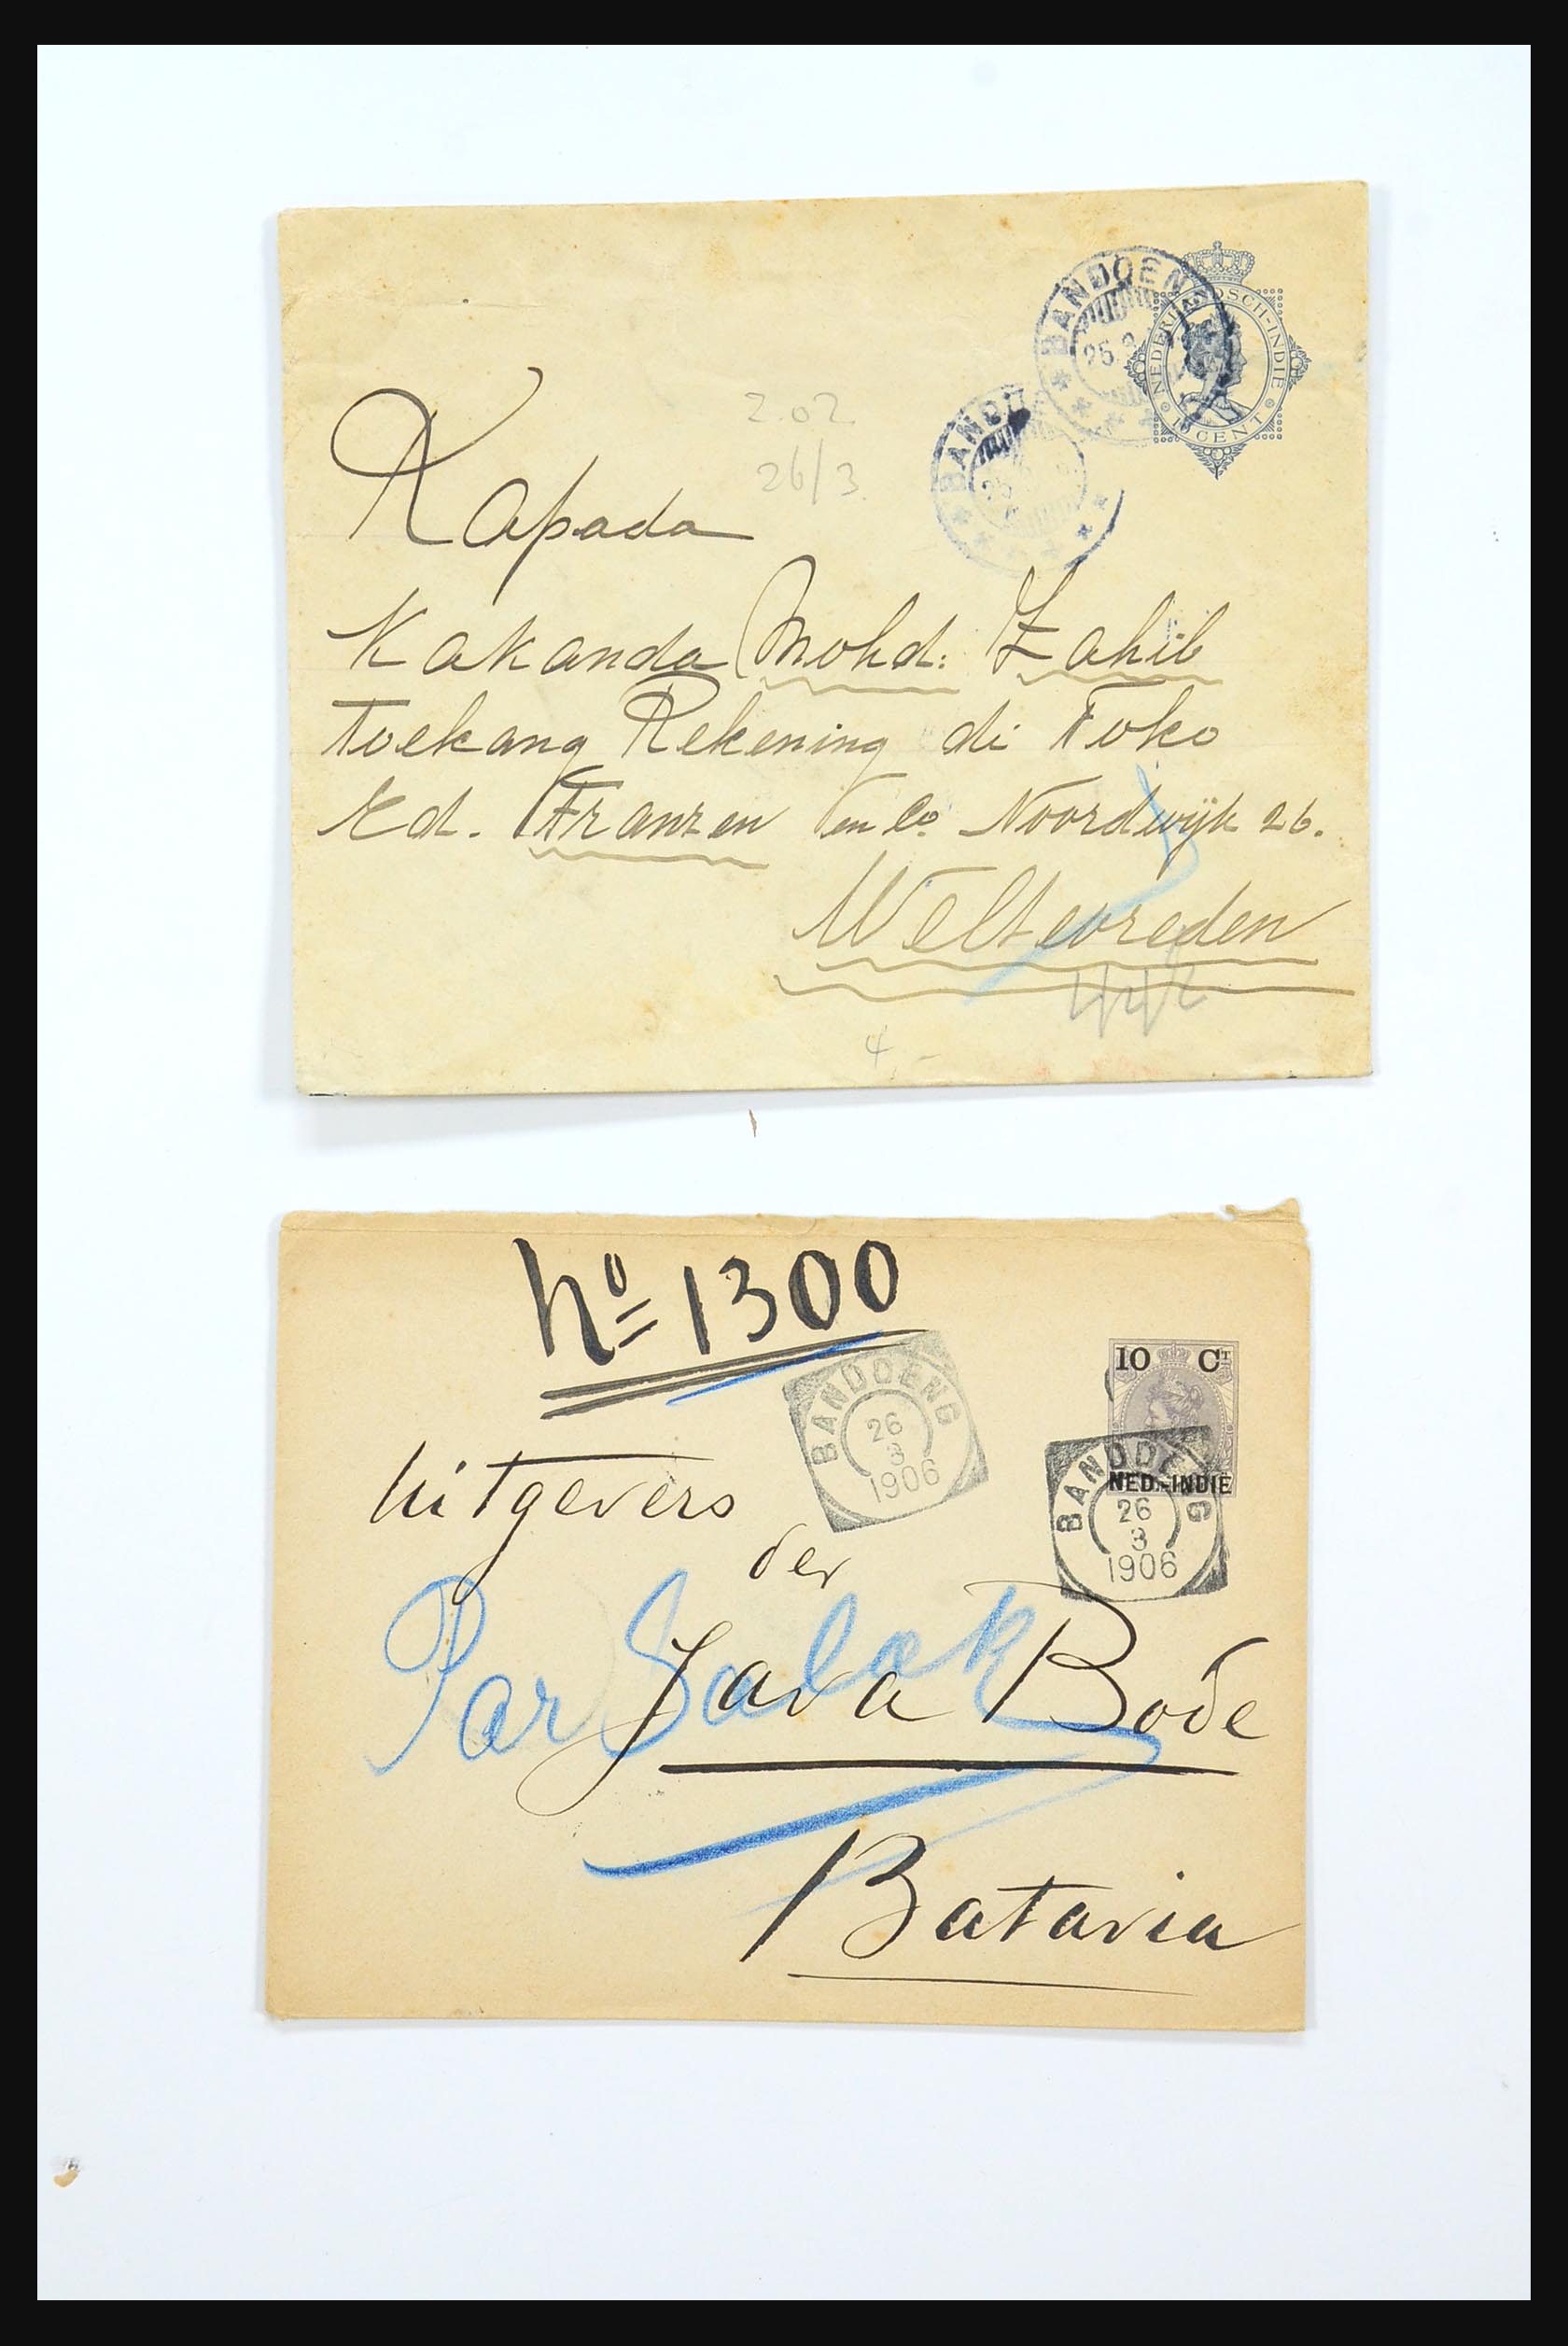 BANDOEN
25.3
NEDERLANDSCH-INDIE
10 CENT
BANDO
2.02
26/3
Kapada
Kakanda Mohd: Zahib
Toekang Rekening di Toko
Ed. Franzen en Co Noordwijk 26.
Weltevreden
4,-
No 1300
10 CT
NED.-INDIE
BANDOENG
26
3
1906
BANDOENG
26
3
1906
Uitgevers
der
Par Salak
Java Bode
Batavia